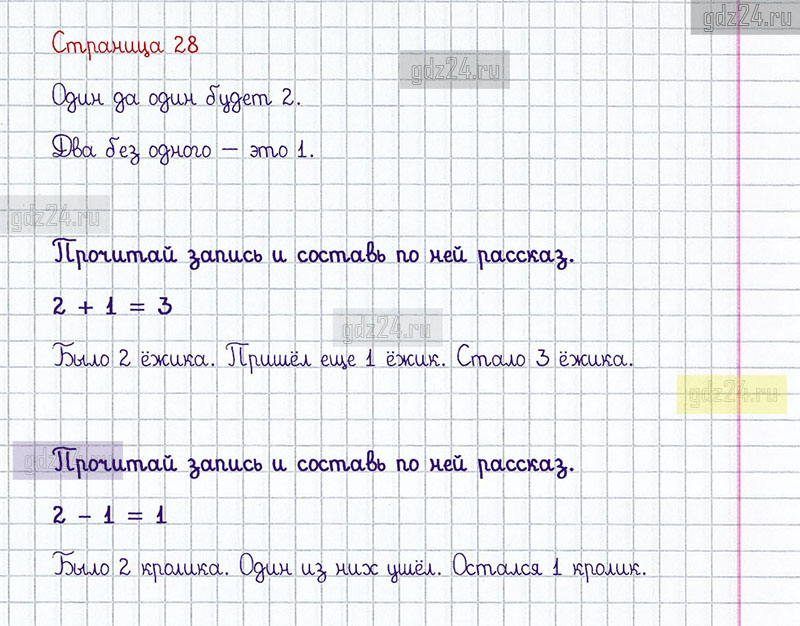 gdz24.ru
Страница 28
gdz24.ru
Один да один будет 2.
Два без одного – это 1.
gdz24.ru
Прочитай запись и составь по ней рассказ.
2 + 1 = 3
gdz24.ru
Было 2 ёжика. Пришёл еще 1 ёжик. Стало 3 ёжика.
gdz24.ru
gdz24.ru
Прочитай запись и составь по ней рассказ.
2 - 1 = 1
Было 2 кролика. Один из них ушёл. Остался 1 кролик.